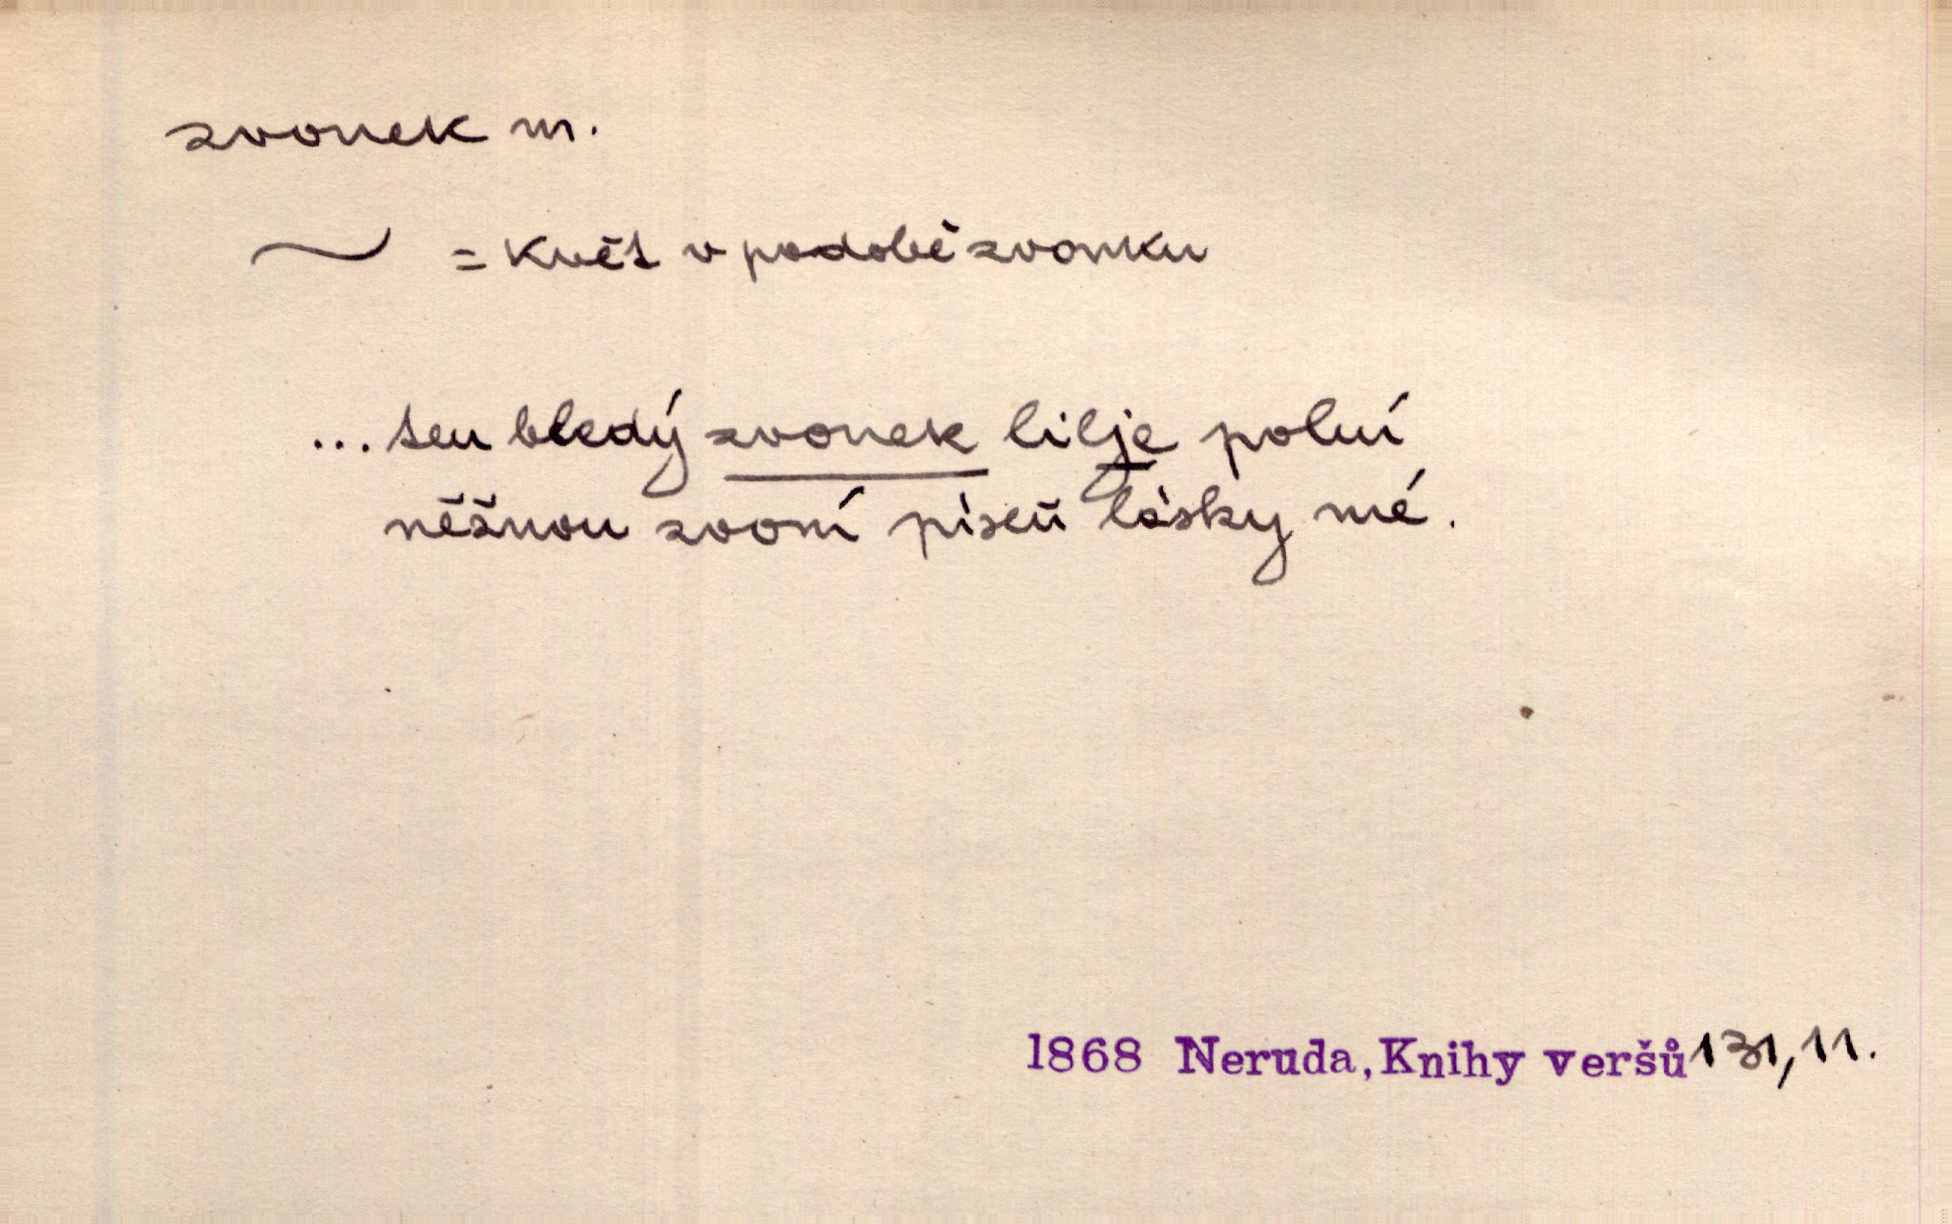 zvonek m.
~ = květ v podobě zvonku
... ten bledý zvonek lilje polní
něžnou zvoní píseň lásky mé.
1868 Neruda, Knihy veršů 131, 11.